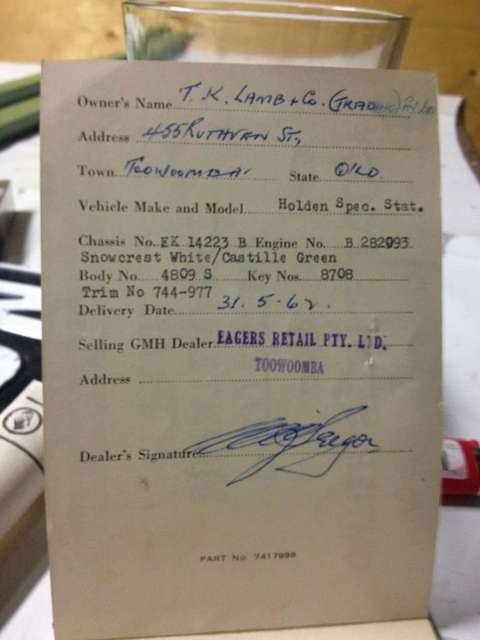 Owner's Name T. K. LAMB & Co. (TRADING) P/L
Address 455 RUTHVEN ST,
Town TOOWOOMBA. State QLD.
Vehicle Make and Model Holden Spec. Stat.
Chassis No. EK 14223 B Engine No. B 282093
Snowcrest White/Castille Green
Body No. 4809 S Key Nos. 8708
Trim No 744-977
Delivery Date 31.5.62.
Selling GMH Dealer EAGERS RETAIL PTY. LTD.
TOOWOOMBA
Address
Dealer's Signature
PART No. 7417999